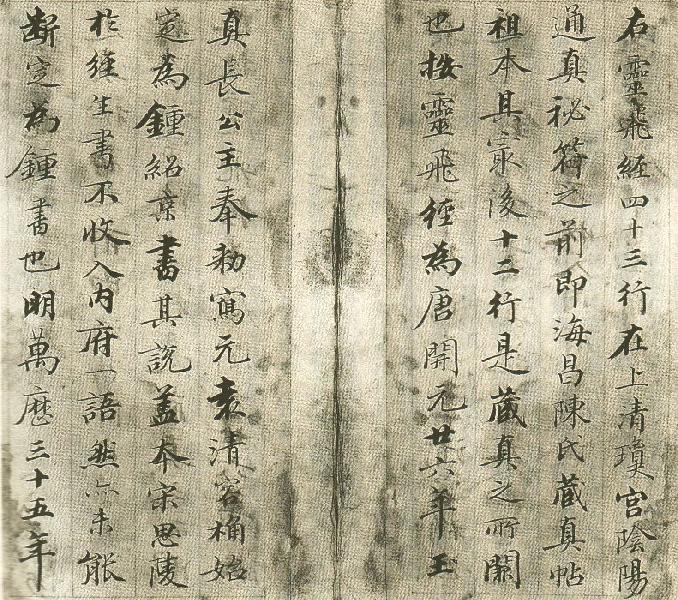 右靈飛經四十三行在上清瓊宮陰陽
通真秘符之前即海昌陳氏藏真帖
祖本其寂後十二行是藏真之所闕
也按靈飛經為唐開元廿六年玉
真長公主奉勑寫元袁清容桷始
定為鍾紹京書其説蓋本宋思陵
於經生書不收入內府一語然亦未能
斷定為鍾書也明萬歷三十五年